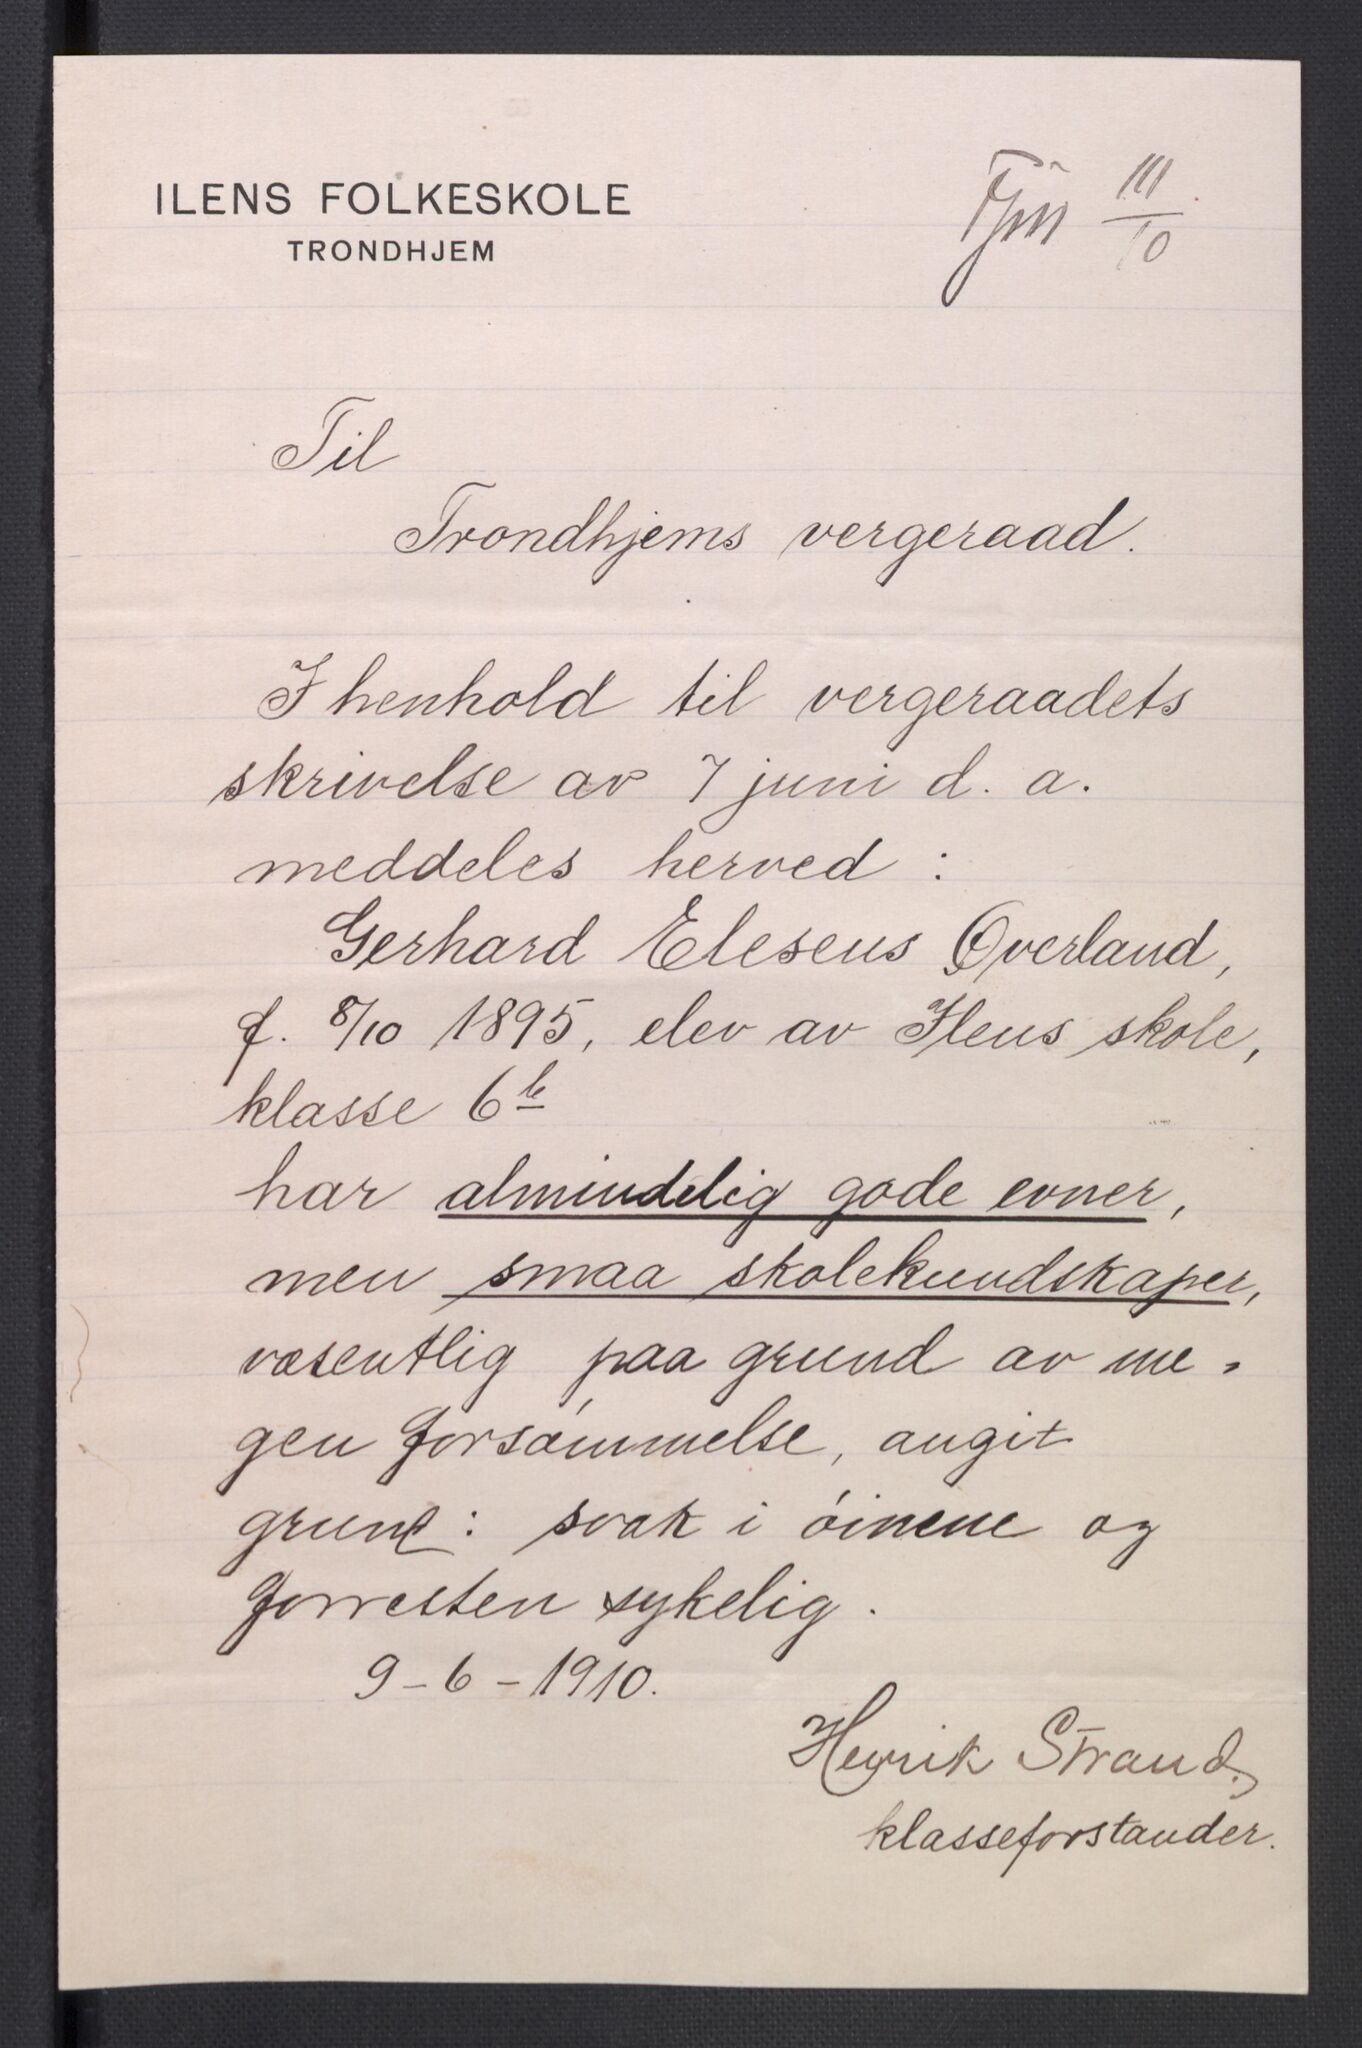 ILENS FOLKESKOLE
TRONDHJEM
111
10
Til
Trondhjems vergeraad.
I henhold til vergeraadets
skrivelse av 7 juni d. a.
meddeles herved :
Gerhard Eleseus Överland,
f. 8/10 1895, elev av Ilens skole,
klasse 6b
har almindelig gode evner,
men smaa skolekundskaper,
væsentlig paa grund av me-
gen forsømmelse, angit
grund : svak i óinene og
forresten sykelig.
9-6-1910.
Henrik Strand.
klasseforstander.